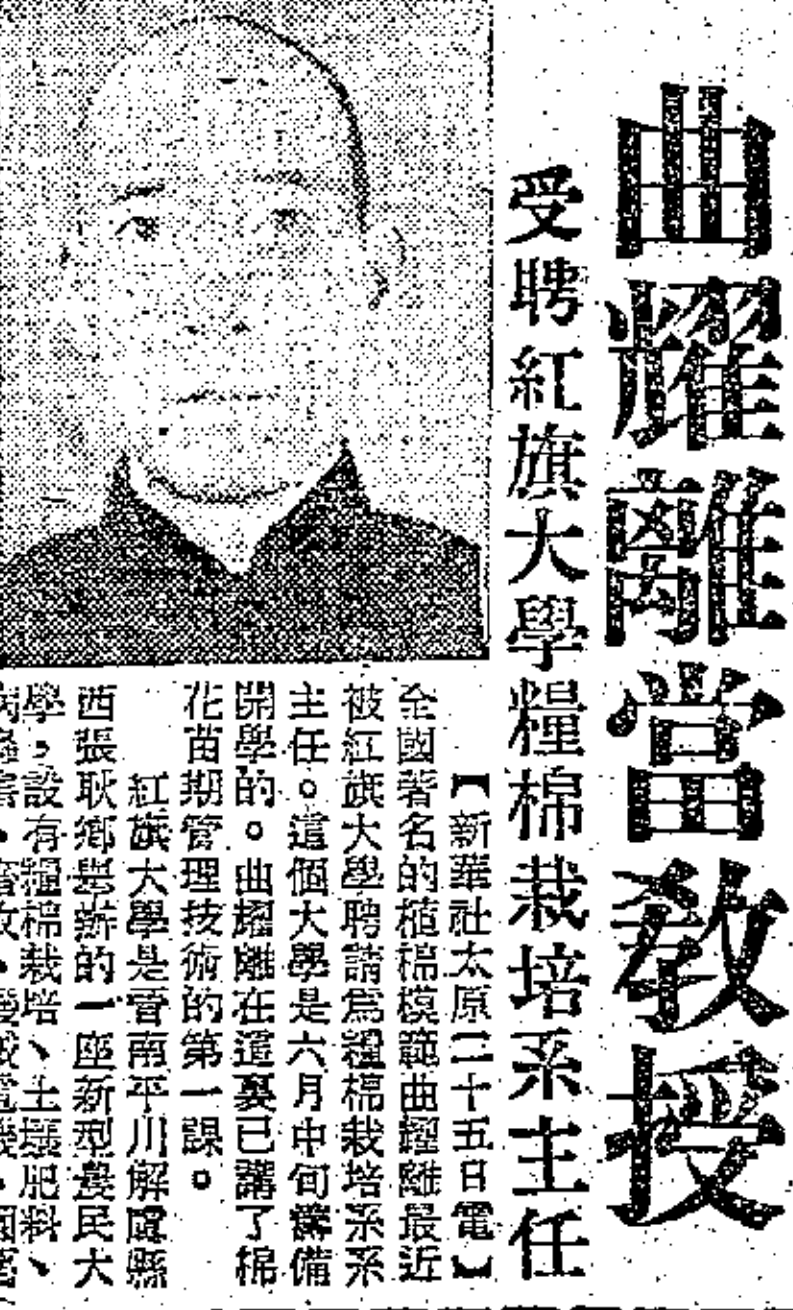 曲耀離當教授
受聘紅旗大學糧棉栽培系主任
【新華社太原二十五日電】
全國著名的植棉模範曲耀離最近
被紅旗大學聘請爲糧棉栽培系系
主任。這個大學是六月中旬籌備
開學的。曲耀離在這裏已講了棉
花苗期管理技術的第一課。
紅旗大學是晋南平川解虞縣
西張耿鄉興辦的一座新型農民大
學，設有糧棉栽培、土壤肥料、
病蟲害、畜牧、